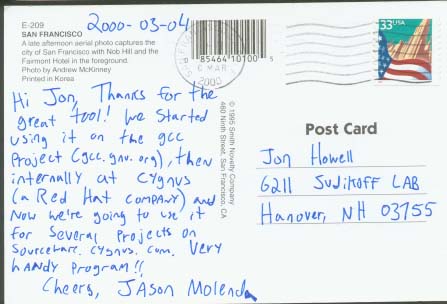 E-209
SAN FRANCISCO
A late afternoon aerial photo captures the
city of San Francisco with Nob Hill and the
Fairmont Hotel in the foreground.
Photo by Andrew McKinney
Printed in Korea
2000-03-04
0 85464 10100 5
MAR
2000
33 USA
Hi Jon, Thanks for the
great tool! We started
using it on the gcc
Project (gcc.gnu.org), then
internally at Cygnus
(a Red Hat company) and
Now we're going to use it
for several projects on
sourceware.cygnus.com. Very
handy program!!
Cheers, Jason Molenda
© 1995 Smith Novelty Company
460 Ninth Street, San Francisco, CA
Post Card
Jon Howell
6211 Sudikoff LAB
Hanover, NH 03755